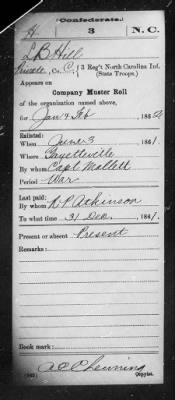 (Confederate.)
H 3 N.C.
L B Hill
Private, Co. C, 3 Reg't North Carolina Inf.
(State Troops.)
Appears on
Company Muster Roll
of the organization named above,
for Jan & Feb, 1862.
Enlisted:
When June 3, 1861.
Where Fayetteville
By whom Capt Mallett
Period War
Last paid:
By whom R P Atkinson
To what time 31 Dec., 1861.
Present or absent Present
Remarks:
Book mark:
(642)
Copyist.